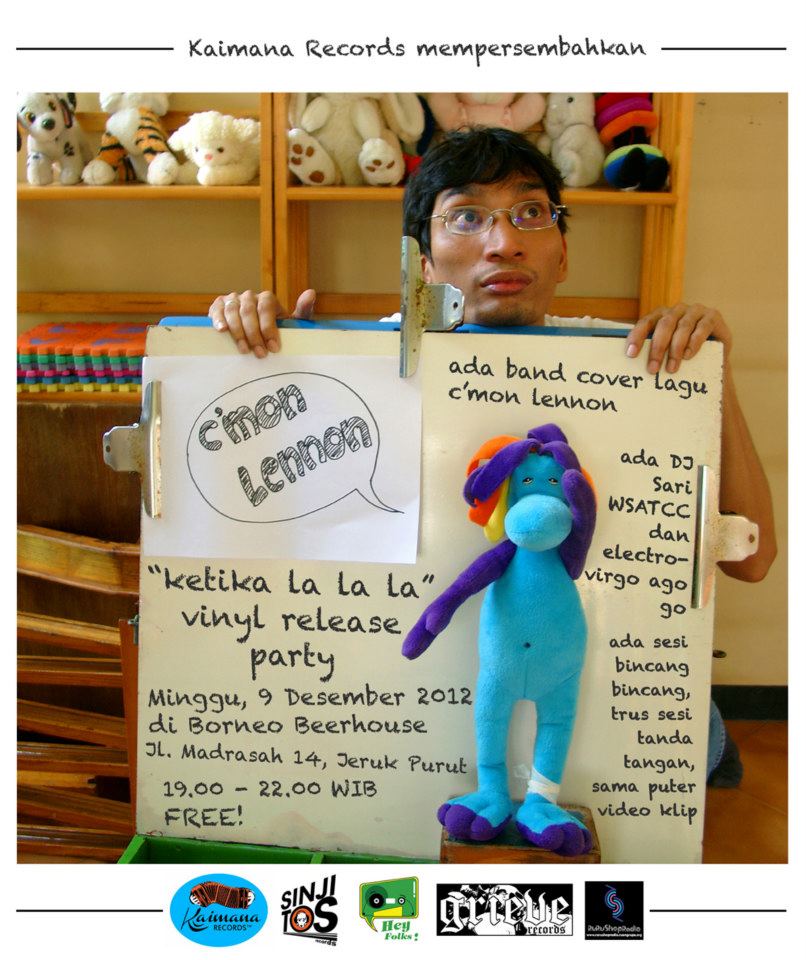 Kaimana Records mempersembahkan
c'mon
Lennon
ada band cover lagu
c'mon lennon
ada DJ
Sari
WSATCC
dan
electro-
virgo ago
go
"ketika la la la"
vinyl release
party
Minggu, 9 Desember 2012
di Borneo Beerhouse
Jl. Madrasah 14, Jeruk Purut
19.00 - 22.00 WIB
FREE!
ada sesi
bincang
bincang,
trus sesi
tanda
tangan,
sama puter
video klip
Kaimana
RECORDS
SINJI
TOS
records
Hey
Folks!
grieve
records
RURUShopRadio